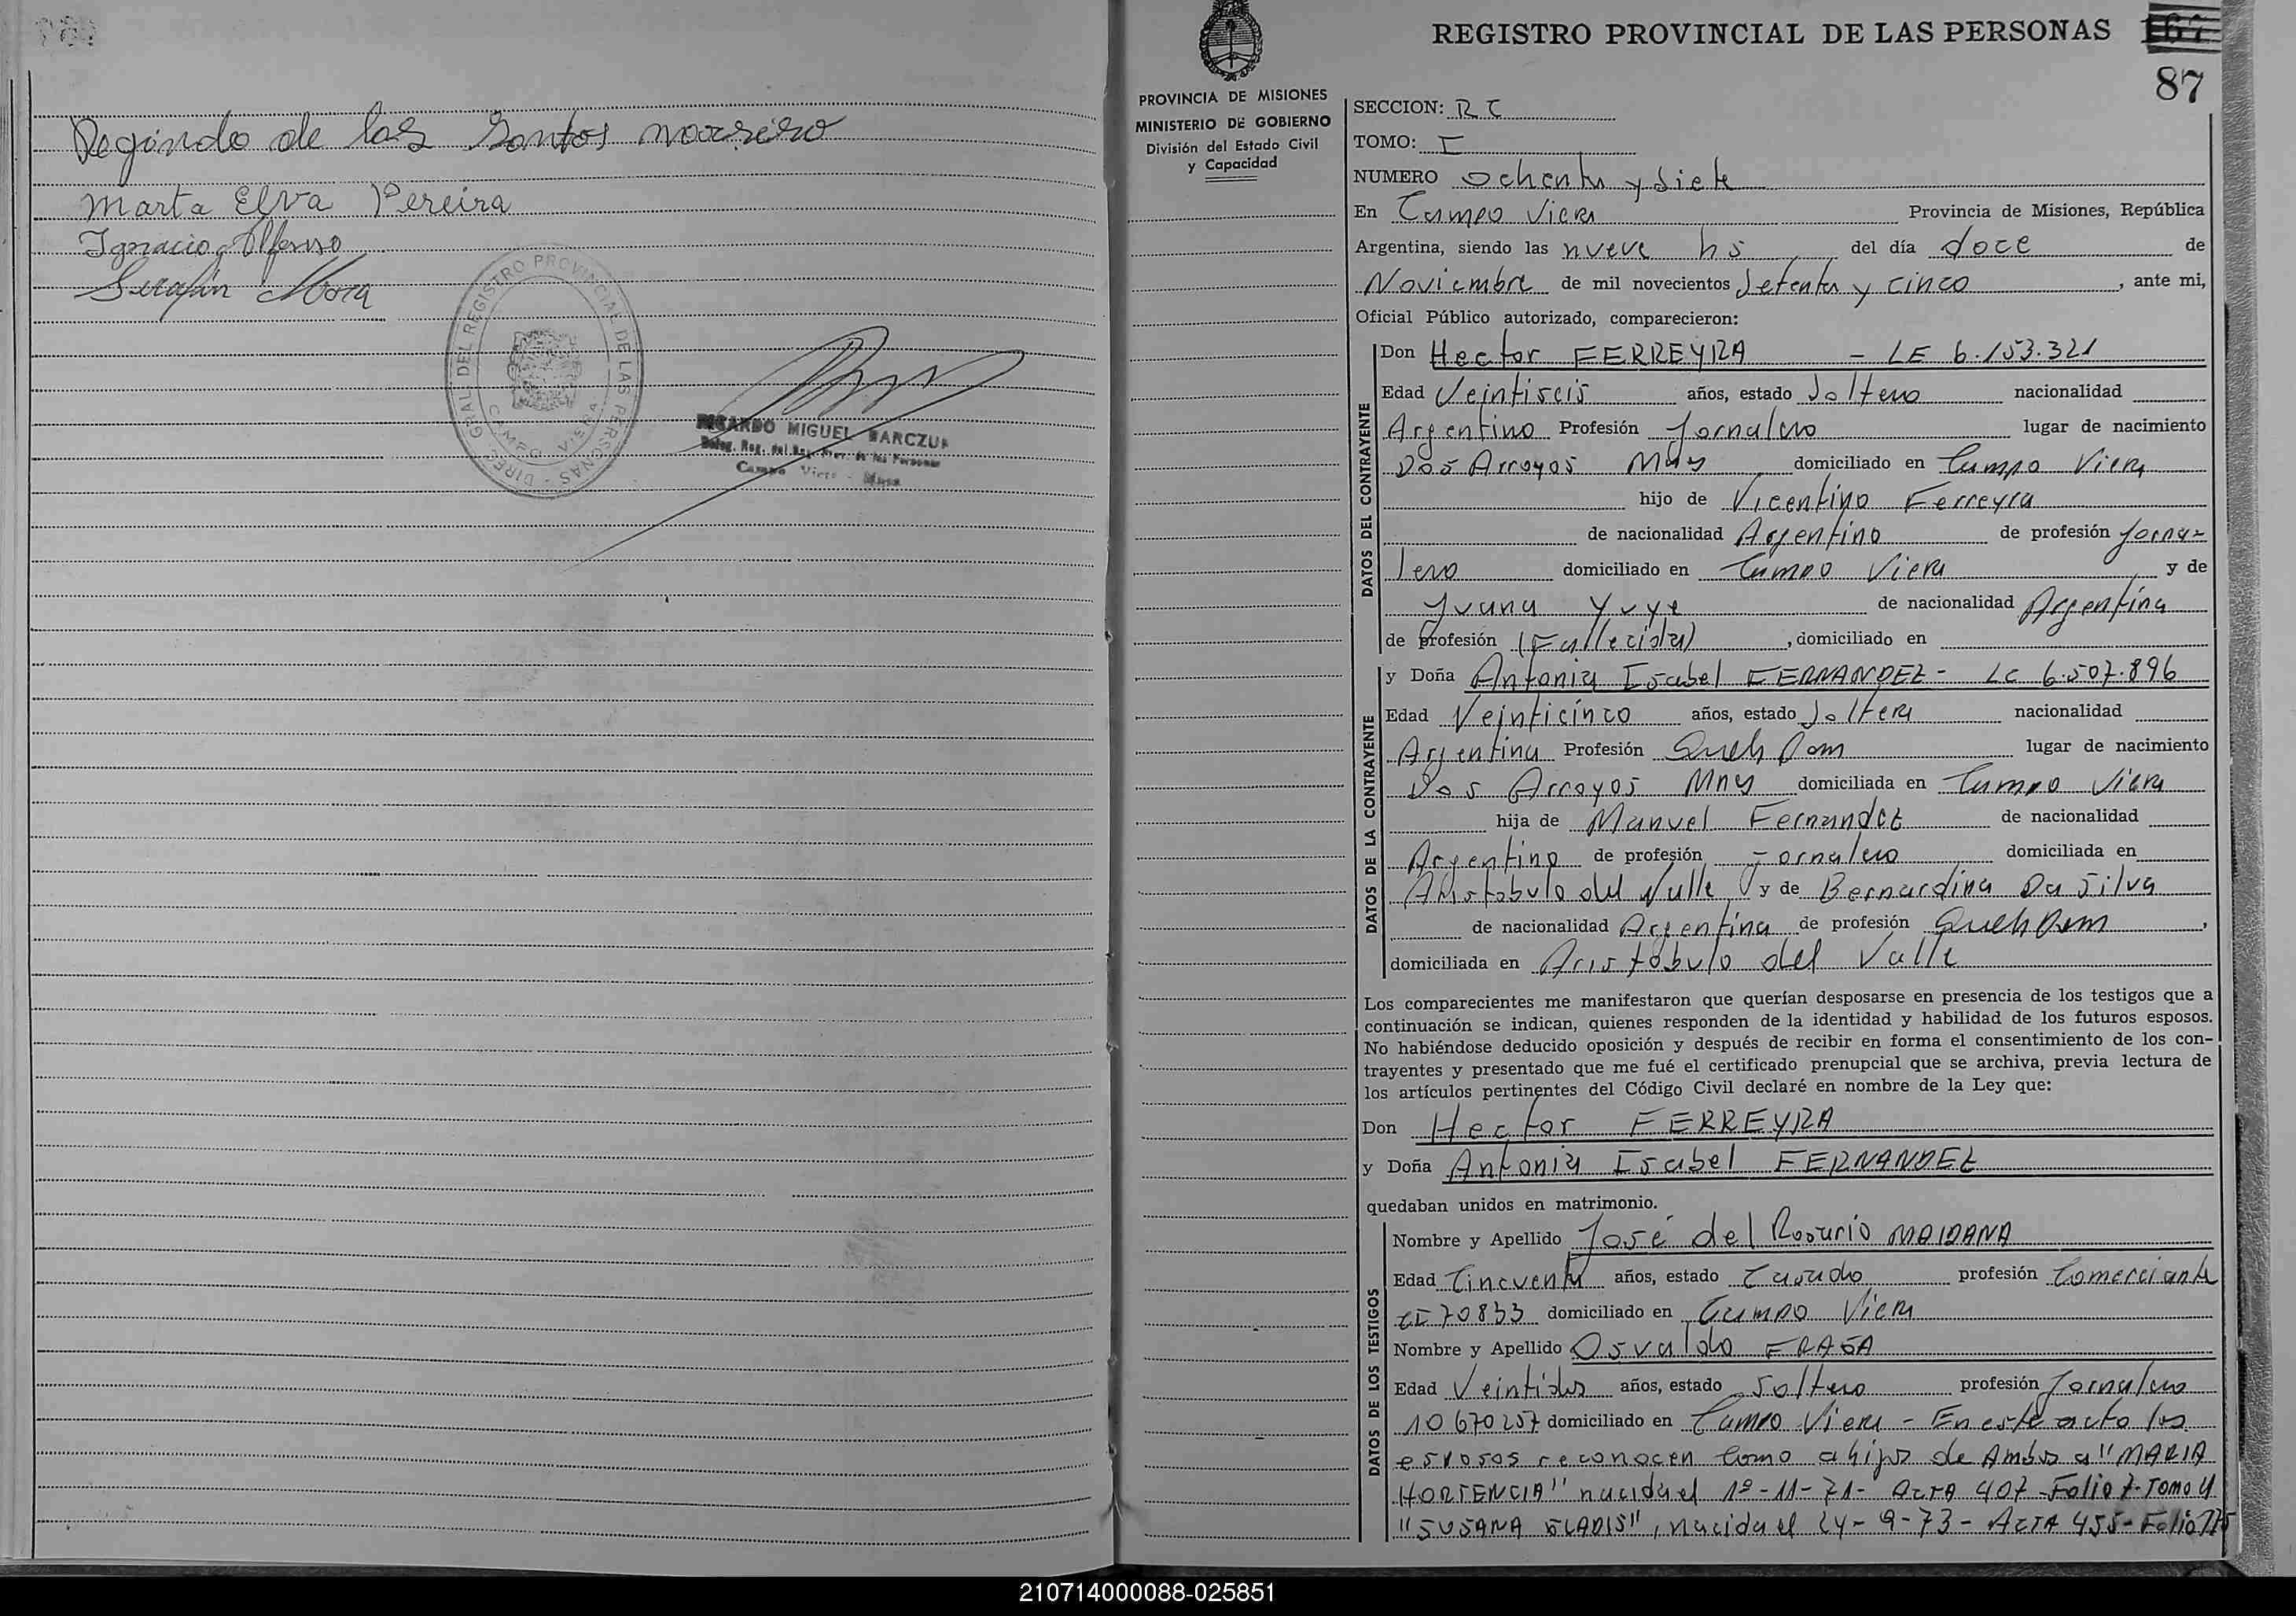 Regindo de las Santos
Marta Elva Pereira
Ignacio Alfonso
Serafin Mora
DIREC. GRAL. DEL REGISTRO PROVINCIAL DE LAS PERSONAS
CAMPO VIERA
RICARDO MIGUEL
Deleg. Reg. del Reg. Prov. de las Personas
Campo Viera - Mnes.
REGISTRO PROVINCIAL DE LAS PERSONAS 167
87
PROVINCIA DE MISIONES
MINISTERIO DE GOBIERNO
División del Estado Civil
y Capacidad
SECCION: R C
TOMO: I
NUMERO Ochenta y Siete
En Campo Viera Provincia de Misiones, República
Argentina, siendo las nueve hs del día doce de
Noviembre de mil novecientos Setenta y cinco, ante mi,
Oficial Público autorizado, comparecieron:
DATOS DEL CONTRAYENTE
Don Hector FERREYRA - LE 6.153.321
Edad Veintiseis años, estado Soltero nacionalidad
Argentino Profesión Jornalero lugar de nacimiento
Dos Arroyos Mnes domiciliado en Campo Viera
hijo de Vicentino Ferreyra
de nacionalidad Argentino de profesión Jorna=
lero domiciliado en Campo Viera y de
Juana Yuye de nacionalidad Argentina
de profesión (Fallecida), domiciliado en
DATOS DE LA CONTRAYENTE
y Doña Antonia Isabel FERNANDEZ - LC 6.507.896
Edad Veinticinco años, estado Soltera nacionalidad
Argentina Profesión Queh Dom lugar de nacimiento
Dos Arroyos Mnes domiciliada en Campo Viera
hija de Manuel Fernandez de nacionalidad
Argentino de profesión Jornalero domiciliada en
Aristobulo del Valle y de Bernardina Da Silva
de nacionalidad Argentina de profesión Queh Dom,
domiciliada en Aristobulo del Valle
Los comparecientes me manifestaron que querían desposarse en presencia de los testigos que a
continuación se indican, quienes responden de la identidad y habilidad de los futuros esposos.
No habiéndose deducido oposición y después de recibir en forma el consentimiento de los con-
trayentes y presentado que me fué el certificado prenupcial que se archiva, previa lectura de
los artículos pertinentes del Código Civil declaré en nombre de la Ley que:
Don Hector FERREYRA
y Doña Antonia Isabel FERNANDEZ
quedaban unidos en matrimonio.
DATOS DE LOS TESTIGOS
Nombre y Apellido José del Rosario MAIDANA
Edad Cincuenta años, estado Casado profesión Comerciante
CI 70833 domiciliado en Campo Viera
Nombre y Apellido Osvaldo
Edad Veintidos años, estado Soltero profesión Jornalero
10 670 257 domiciliado en Campo Viera - En este acto los
esposos reconocen como a hijos de Ambos a "MARIA
HORTENCIA" nacida el 1º-11-71- ACTA 407 -Folio 7- Tomo
"SUSANA GLADIS", nacida el 24-9-73- ACTA 455- Folio
210714000088-025851